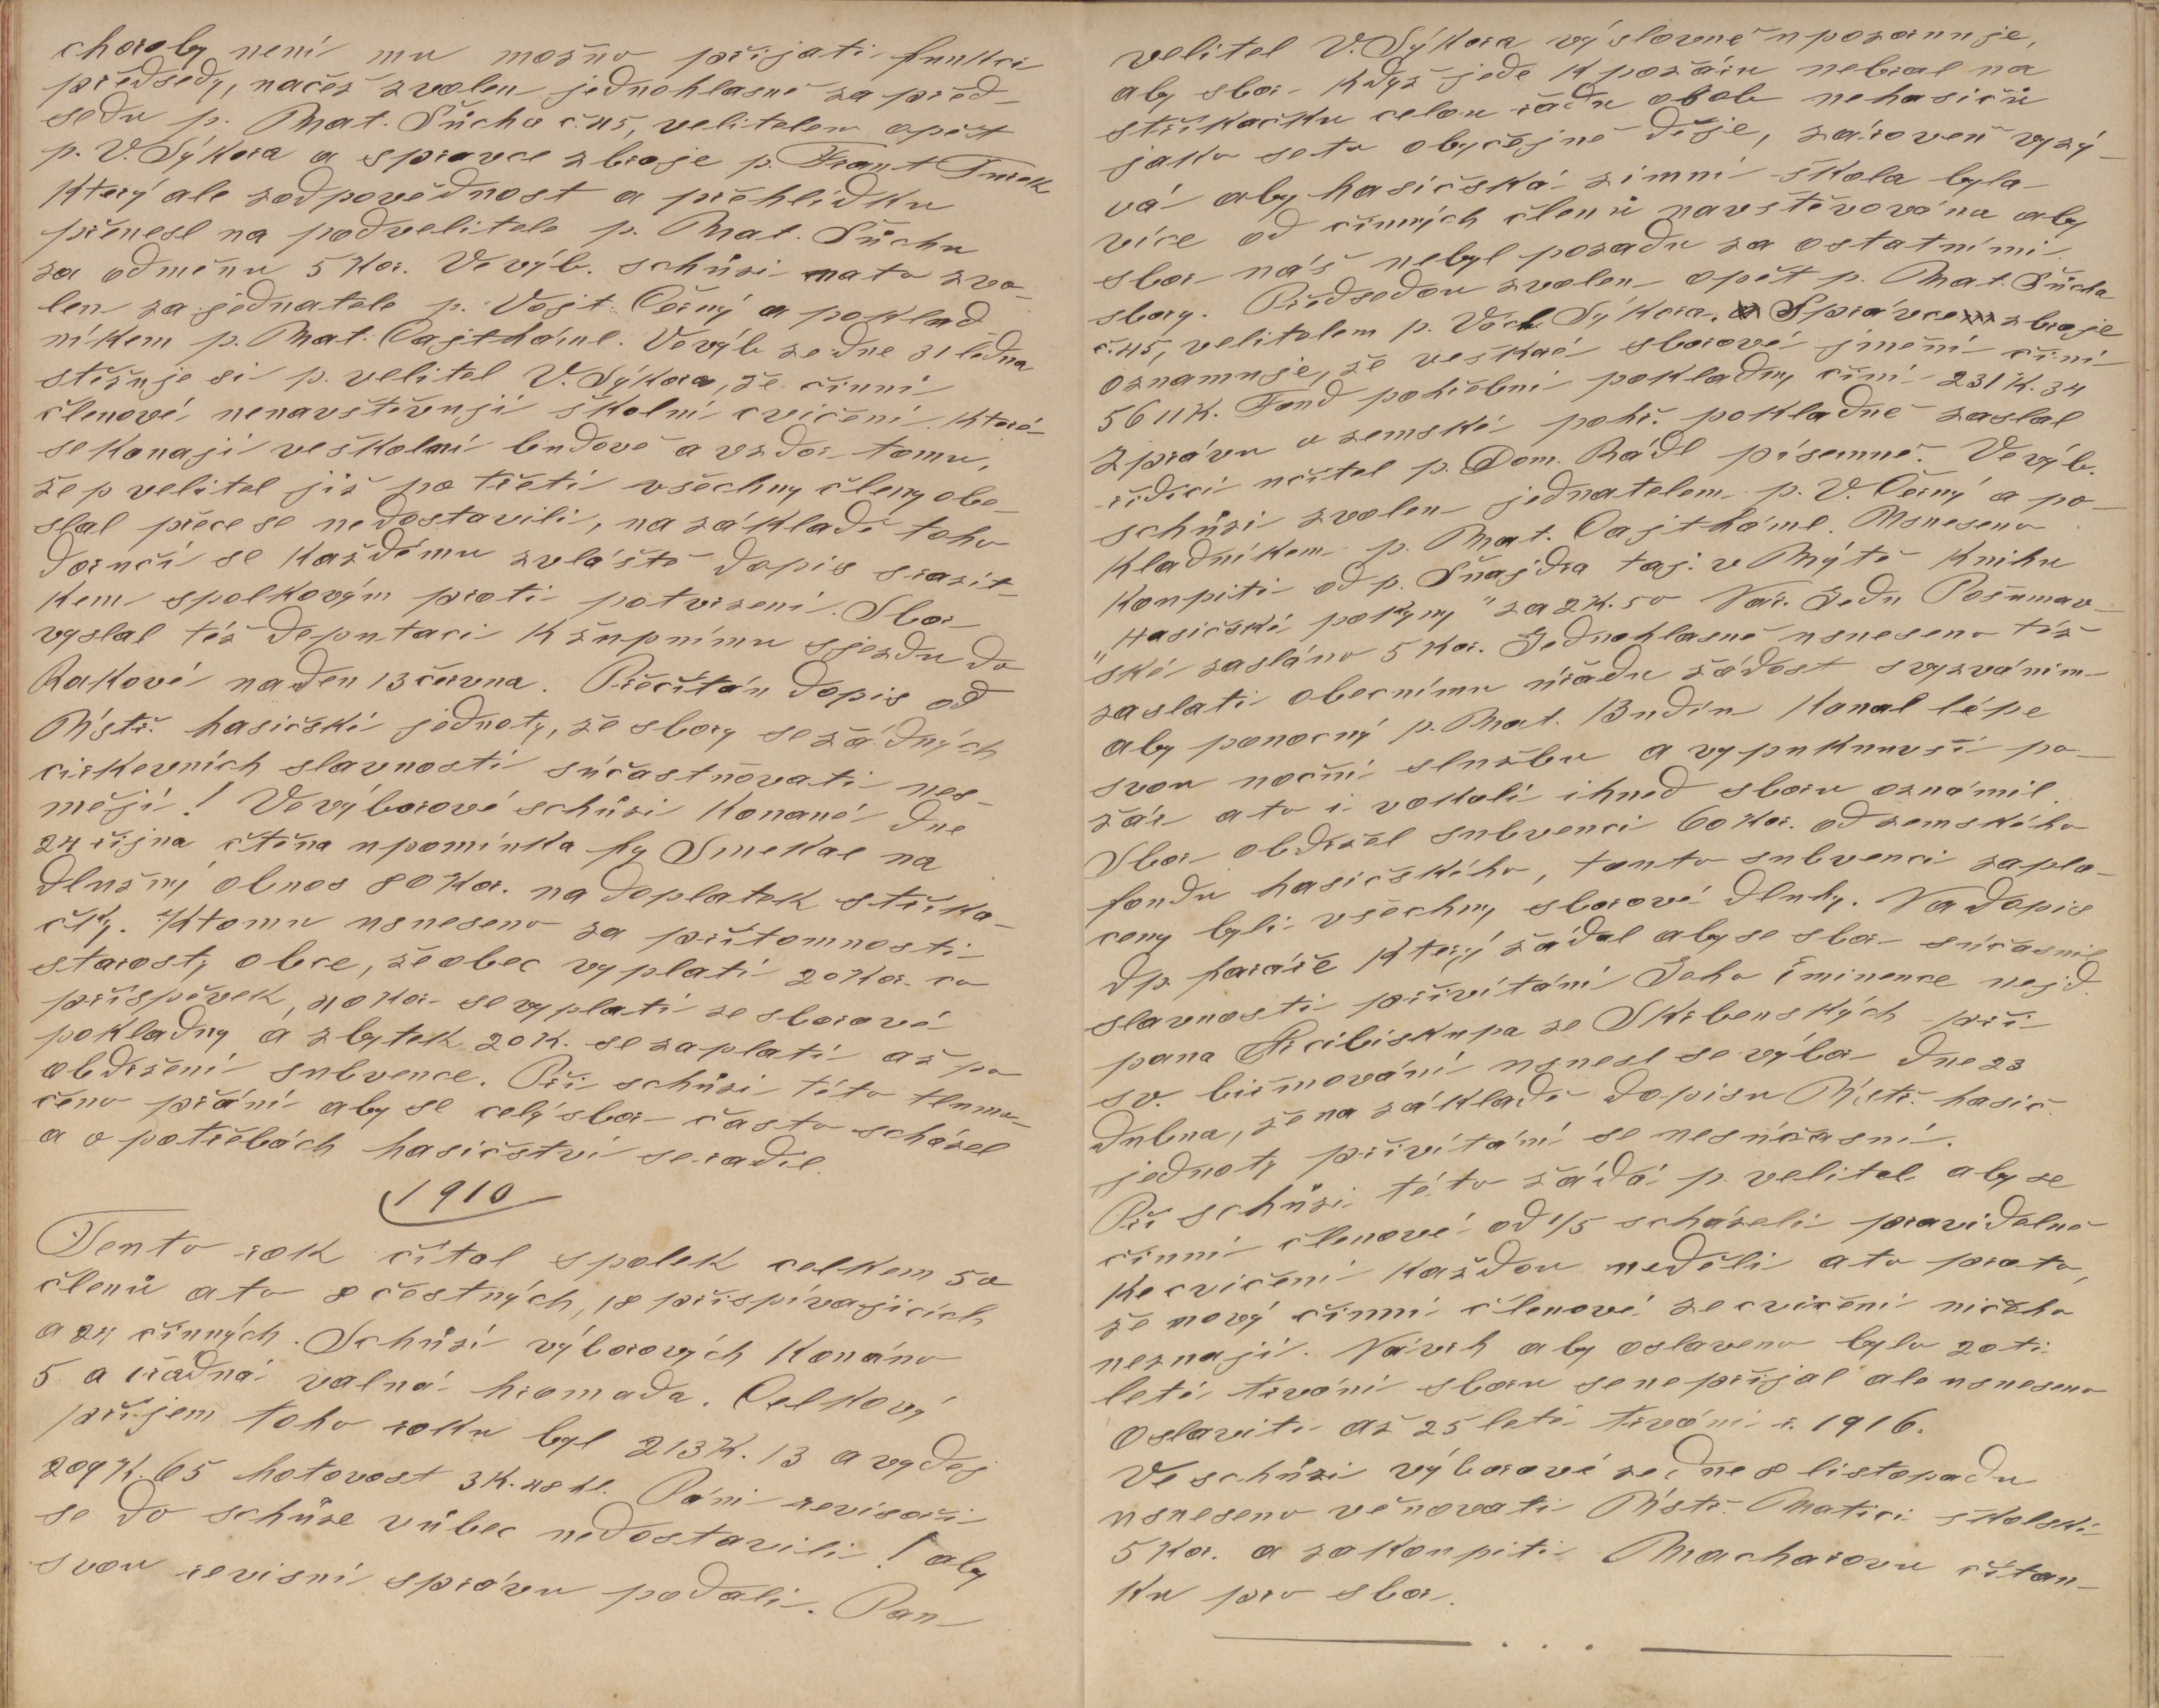 choroby není mu možno přijati funkci
předsedy, načež zvolen jednohlasně za před-
sedu p. Mat. Šůcha č. 45, velitelem opět
p. V. Sýkora a spravce zbroje p. Frant Turek
který ale zodpovědnost a přehlídku
přenesl na podvelitele p. Mat. Šůchu
za odměnu 5 Kor. Ve výb. schůzi na to zvo-
len za jednatele p. Vojt. Černý a poklad-
níkem p. Mat. Cajthaml. Ve výb ze dne 31 ledna
stěžuje si p. velitel V. Sýkora, že činní
členové nenavštěvují školní cvičení které
se konají ve školní budově a vzdor tomu,
že p velitel již po třetí všechny členy obe-
slal přece se nedostavili, na základě toho
doručí se každému zvláště dopis s razít-
kem spolkovým proti potvrzení. Sbor
vyslal též deputaci k župnímu sjezdu do
Rakové na den 13 června. Přečítán dopis od
Ústř. hasičské jednoty, že sbory se žádných
církevních slavností súčastňovati nes-
mějí! Ve výborové schůzi konané dne
24 října čtěna upomínka fy Smekal na
dlužný obnos 80 Kor. na doplatek stříka-
čky. K tomu usneseno za přítomnosti
starosty obce, že obec vyplatí 20 Kor. co
příspěvek, 40 Kor. se vyplatí ze sborové
pokladny a zbytek 20 K. se zaplatí až po
obdržení subvence. Při schůzi této tlumo-
čeno přání aby se celý sbor často scházel
a o potřebách hasičství se radil.
1910
Tento rok čítal spolek celkem 50
členů a to 8 čestných, 18 přispívajících
a 24 činných. Schůzí výborových konáno
5 a řádná valná hromada. Celkový
příjem toho roku byl 213 K. 13 a vydej
209 K. 65 hotovost 3 K. 48 hl. Páni revisoři
se do schůze vůbec nedostavili! aby
svou revisní spravu podali. Pan
velitel V. Sýkora výslovně upozornuje,
aby sbor když jede k požáru nebral na
stříkačku celou řadu osob nehasičů
jako se to obyčejně děje, zároveň vyzý-
vá aby hasičská zimní škola byla
více od činných členů navštěvována aby
sbor náš nebyl pozadu za ostatními
sbory. Předsedou zvolen opět p. Mat. Šůcha
č. 45, velitelem p. Václ. Sýkora. Správce zbroje
oznamuje, že veškaé sborové jmění činí
5611 K. Fond pohřební pokladny činí 231 K. 34
Zprávu o zemské pohř. pokladně zaslal
řídící učitel p. Dom. Rádl písemně. Ve výb.
schůzi zvolen jednatelem p. V. Černý a po-
kladníkem p. Mat. Cajthaml. Usneseno
koupiti od p. Šnajdra taj. v Mýtě knihu
„Hasičské pokyny" za 2 K. 50 Nár. Jedn Pošumav-
ské zasláno 5 Kor. Jednohlasně usneseno též
zaslati obecnímu úřadu žádost s vyzváním
aby ponocný p. Mat. Budín konal lépe
svou noční službu a vypuknuvší po-
žár a to i v okolí ihned sboru oznámil.
Sbor obdržel subvenci 60 Kor. od zemského
fondu hasičského, touto subvencí zapla-
ceny byli všechny sborové dluhy. Na dopis
dp. faráře který žádal aby se sbor súčasnil
slavnosti přivítání Jeho Eminence nejd.
pana Arcibiskupa ze Skrbenských při
sv. biřmování usnesl se výbor dne 23
dubna, že na základě dopisu Ústř. hasič.
jednoty přivítání se nesúčasní.
Při schůzi této žádá p. velitel aby se
činní členové od 1/5 scházeli pravidelně
ke cvičení každou neděli a to proto,
že nový činní členové ze cvičení ničeho
neznají. Návrh aby oslaveno bylo 20ti
leté trvání sboru se nepřijal ale usneseno
oslaviti až 25 leté trvání r. 1916.
Ve schůzi výborové ze dne 8 listopadu
usneseno věnovati Ústř. Matici školské
5 Kor. a zakoupiti Macharovu čítan-
ku pro sbor.